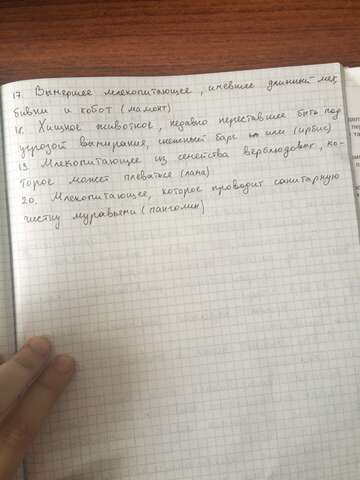 17. Вымершее млекопитающее, имевшее длинный мех
бивни и хобот (мамонт)
18. Хищное животное, недавно переставшее быть под
угрозой вымирания, снежный барс или (ирбис)
19. Млекопитающее из семейства верблюдовых, ко-
торое может плеваться (лама)
20. Млекопитающее, которое проводит санитарную
чистку муравьями (панголин)